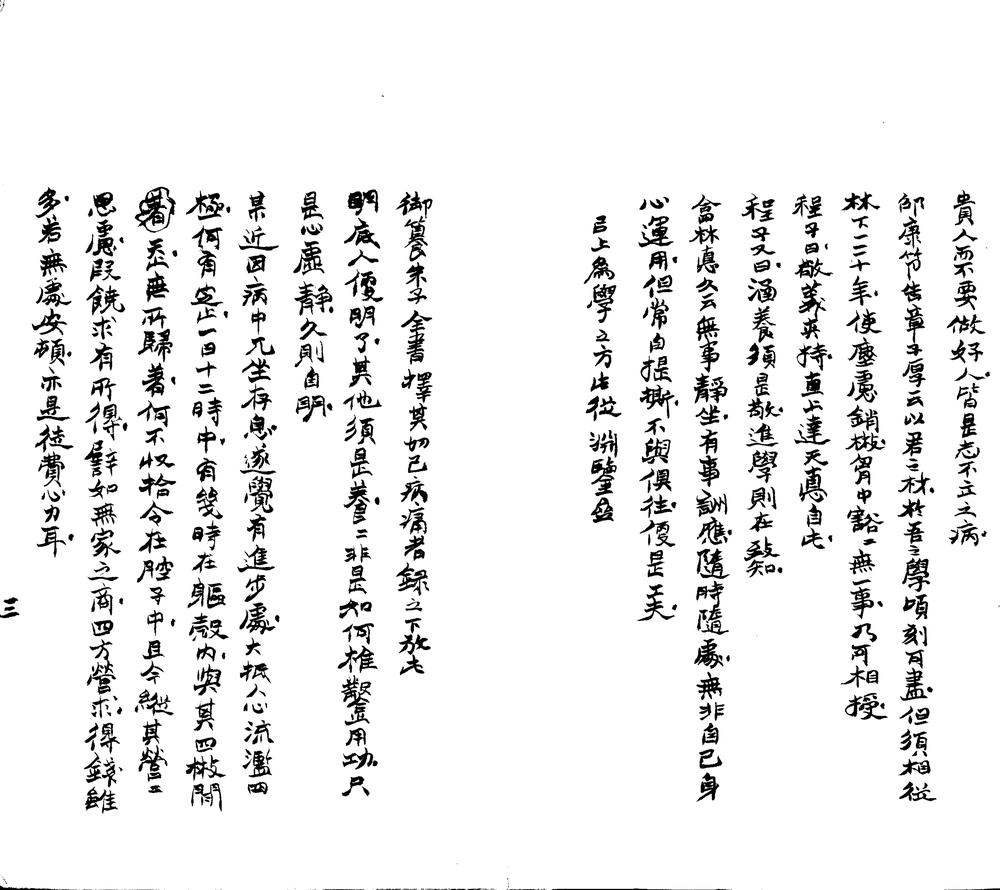 貴人而不要做好人皆是志不立之病
邵康節告章子厚云以君之材於吾之學頃刻可盡但須相從
林下一二十年使塵慮銷散胷中豁〻無一事乃可相授
程子曰敬義夾持直上達天悳自此
程子又曰涵養須是敬進學則在致知
畣林悳久云無事靜坐有事酬應隨時隨處無非自己身
心運用但常自提撕不與俱往便是工夫
㠯上為學之方出從淵鑒
御纂朱子全書擇其切己病痛者錄之下放此
明底人便明了其他須是養〻非是如何椎鑿用功只
是心虛靜久則自明
某近因病中兀坐存息遂覺有進步處大抵人心流濫四
極何有定止一日十二時中有幾時在軀殼内與其四散閒
著茫無所歸著何不收拾令在腔子中且今縱其營〻
思慮叚饒求有所得譬如無家之商四方營求得錢雖
多若無處安頓亦是徒費心力耳
三